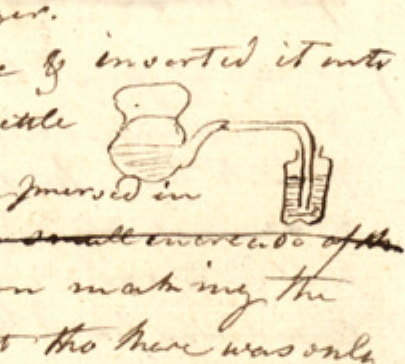 & inserted it into
ittle
mersed in
small increase of the
making the
t tho there was only